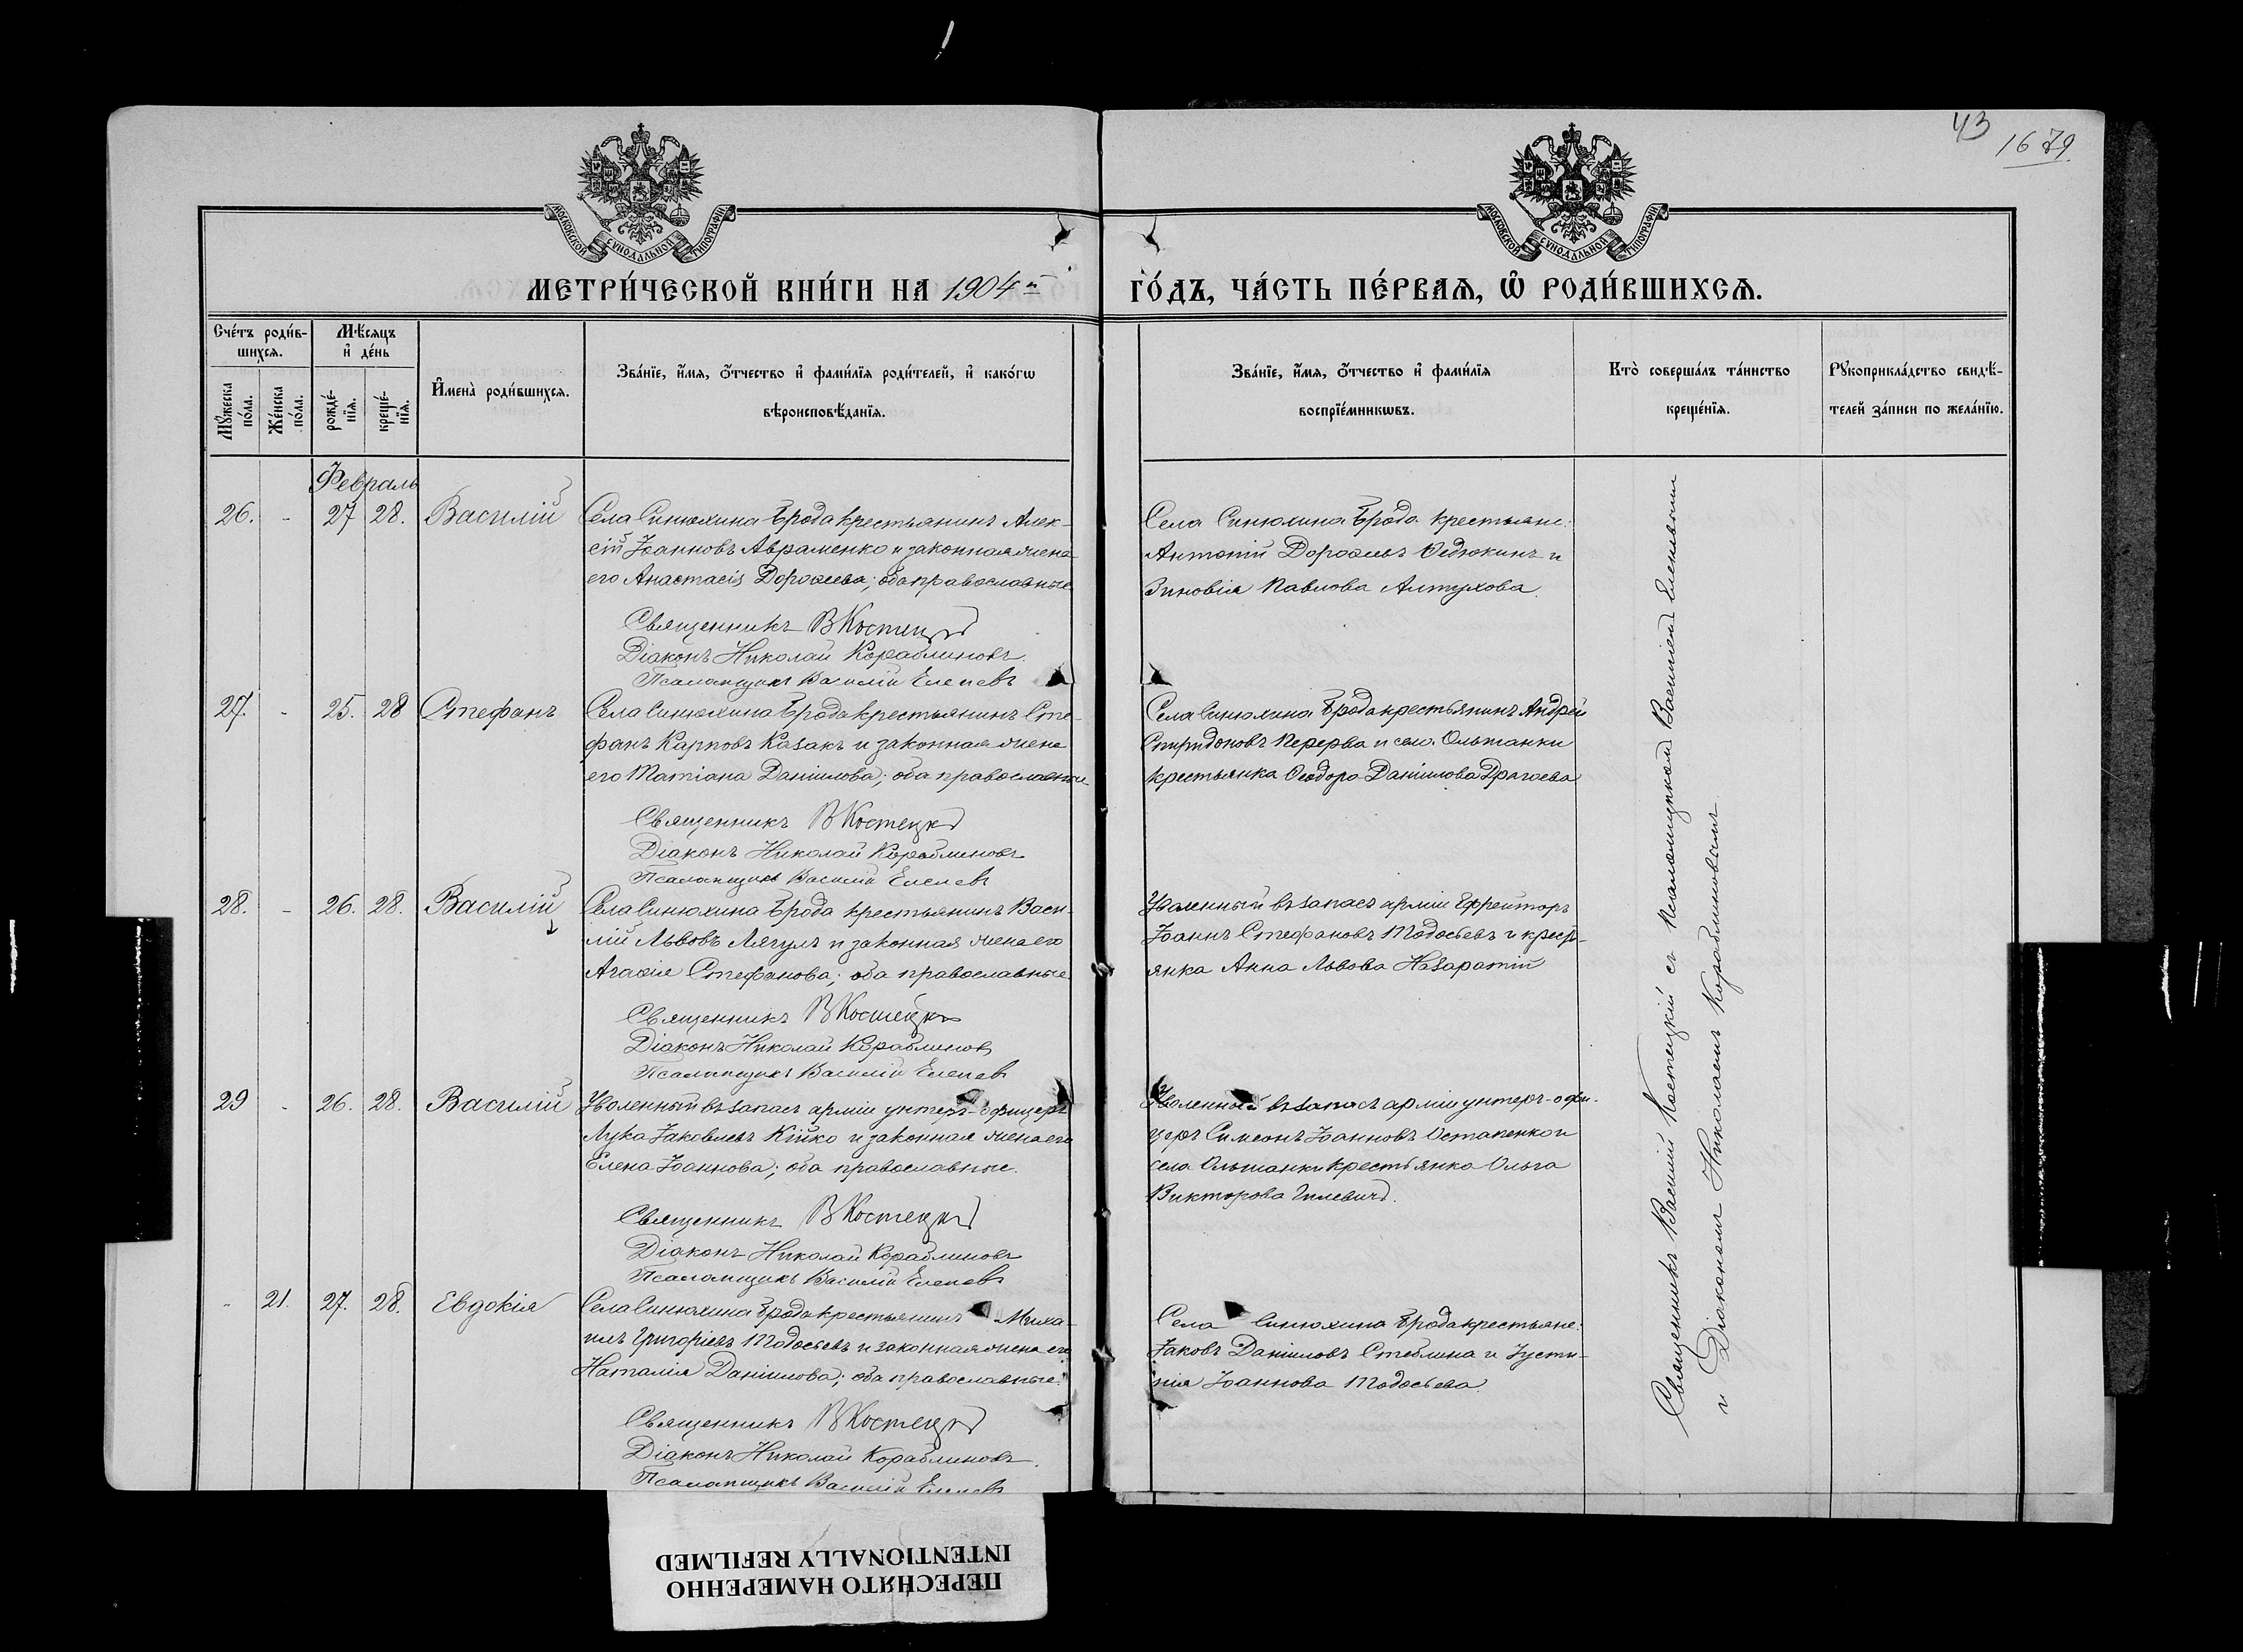 43
1679.
МОСКОВСКОЙ СѴНОДАЛЬНОЙ ТИПОГРАФІИ
МОСКОВСКОЙ СѴНОДАЛЬНОЙ ТИПОГРАФІИ
МЕТРИ́ЧЕСКОЙ КНИ́ГИ НА 1904й
ГО́ДЪ, ЧА́СТЬ ПЕ́РВАѦ, Ѡ҆ РОДИ́ВШИХСѦ.
Сче́тъ роди́в-
шихсѧ.
Мꙋ́жеска по́ла.
Же́нска по́ла.
Мѣ́сяцъ
и҆ де́нь
рожде́-
нїѧ.
креще́-
нїѧ.
И҆мена̀ роди́вшихсѧ.
Зва́нїе, и҆́мѧ, ѻ҆́тчество и҆ фами́лїѧ роди́телей, и҆ како́гѡ
вѣроисповѣ́данїѧ.
Зва́нїе, и҆́мѧ, ѻ҆́тчество и҆ фами́лїѧ
воспрїе́мникѡвъ.
Кто̀ соверша́лъ та́инство
креще́нїѧ.
Рꙋкоприкла́дство свидѣ́-
телей за́писи по жела́нїю.
Февраль
26. - 27 28. Василій
Села Синюхина Брода крестьянинъ Алек-
сій Іоанновъ Авраменко и законная жена
его Анастасія Дороѳеева; оба православные
Священникъ В Костецкій
Діаконъ Николай Кораблиновъ.
Псаломщикъ Василій Елепевъ
Села Синюхина Брода крестьяне:
Антоній Дороѳеевъ Ѳедюкинъ и
Зиновія Павлова Алтухова.
27. - 25. 28 Стефанъ
Села Синюхина Брода крестьянинъ Сте-
фанъ Карповъ Казакъ и законная жена
его Татіана Даніилова; оба православные
Священникъ В Костецкій
Діаконъ Николай Кораблиновъ
Псаломщикъ Василій Елепевъ
Села Синюхина Брода крестьянинъ Андрей
Спиридоновъ Перерва и сел. Ольшанки
крестьянка Ѳеодора Даніилова Драгоева
28. - 26. 28. Василій
Села Синюхина Брода крестьянинъ Васи-
лій Львовъ Лягулъ и законная жена его
Агаѳія Стефанова; оба православные
Священникъ В Костецкій
Діаконъ Николай Кораблиновъ
Псаломщикъ Василій Елепевъ
Уволенный въ запасъ арміи Ефрейторъ
Іоаннъ Стефановъ Тодосьевъ и крест-
янка Анна Львова Назаратій
29 - 26. 28. Василій
Уволенный въ запасъ арміи унтеръ-офицеръ
Лука Іаковлевъ Кійко и законная жена его
Елена Іоаннова; оба православные.
Священникъ В Костецкій
Діаконъ Николай Кораблиновъ
Псаломщикъ Василій Елепевъ
Уволенный въ запасъ арміи унтеръ-офи-
церъ Симеонъ Іоанновъ Остапенко и
села Ольшанки крестьянка Ольга
Викторова Гилевичъ.
" 21. 27. 28. Евдокія
Села Синюхина Брода крестьянинъ Миха-
илъ Григоріевъ Тодосьевъ и законная жена его
Наталія Даніилова; оба православные.
Священникъ В Костецкій
Діаконъ Николай Кораблиновъ.
Псаломщикъ Василій Елепевъ
Села Синюхина Брода крестьяне:
Іаковъ Данііловъ Стеблина и Іусти-
нія Іоаннова Тодосьева.
Священникъ Василій Костецкій съ псаломщикомъ Василіемъ Елепевымъ
и Діакономъ Николаемъ Кораблиновымъ
ПЕРЕСНЯТО НАМЕРЕННО
INTENTIONALLY REFILMED